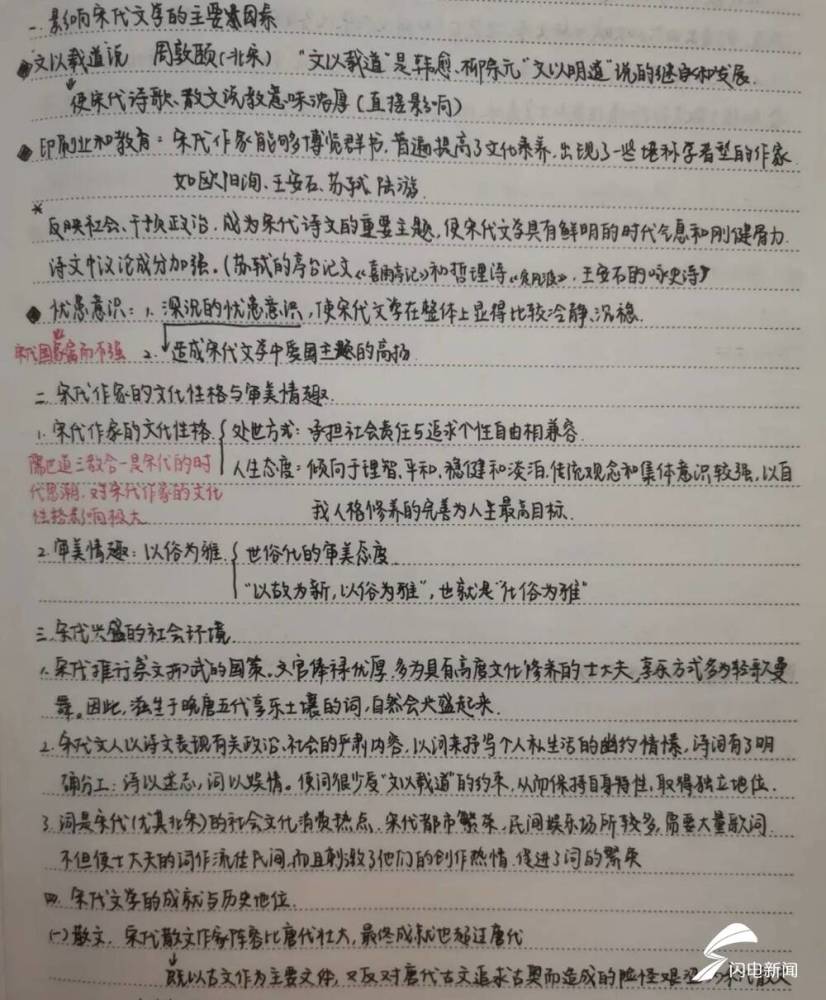 一.影响宋代文学的主要因素
◆文以载道说 周敦颐(北宋) “文以载道”是韩愈、柳宗元“文以明道”说的继承和发展.
使宋代诗歌、散文说教意味浓厚(直接影响)
◆印刷业和教育:宋代作家能够博览群书,普遍提高了文化素养,出现了一些堪称学者型的作家
如欧阳洵、王安石、苏轼、陆游.
*反映社会、干预政治,成为宋代诗文的重要主题,使宋代文学具有鲜明的时代气息和刚健骨力.
诗文中议论成分加强。(苏轼的亭台记文《喜雨亭记》和哲理诗 王安石的咏史诗)
◆忧患意识:1.深沉的忧患意识,使宋代文学在整体上显得比较冷静、沉稳.
宋代国家富而不强 2.造成宋代文学中爱国主题的高扬
二.宋代作家的文化性格与审美情趣.
1.宋代作家的文化性格 处世方式:承担社会责任与追求个性自由相兼容.
儒道三教合一是宋代的时
代思潮,对宋代作家的文化
性格影响极大
人生态度:倾向于理智、平和、稳健和淡泊.传统观念和集体意识较强,以自
我人格修养的完善为人生最高目标.
2.审美情趣:以俗为雅 世俗化的审美态度
“以故为新,以俗为雅”,也就是“化俗为雅”
三.宋代兴盛的社会环境
1.宋代推行崇文抑武的国策。文官俸禄优厚,多为具有高度文化修养的士大夫,享乐方式多为轻歌曼
舞。因此,滋生于晚唐五代享乐土壤的词,自然会兴盛起来.
2.宋代文人以诗文表现有关政治、社会的严肃内容,以词来抒写个人私生活的幽约情愫,诗词有了明
确分工:诗以述志,词以娱情。使词很少受“文以载道”的约束,从而保持自身特性,取得独立地位.
3.词是宋代(尤其北宋)的社会文化消费热点.宋代都市繁荣,民间娱乐场所较多,需要大量歌词.
不但使士大夫的词作流传民间,而且刺激了他们的创作热情,促进了词的繁荣
四.宋代文学的成就与历史地位.
(一)散文.宋代散文作家阵容比唐代壮大,最终成就也超过唐代
既以古文作为主要文体,又反对唐代古文追求古奥而造成的险怪艰涩
闪电新闻